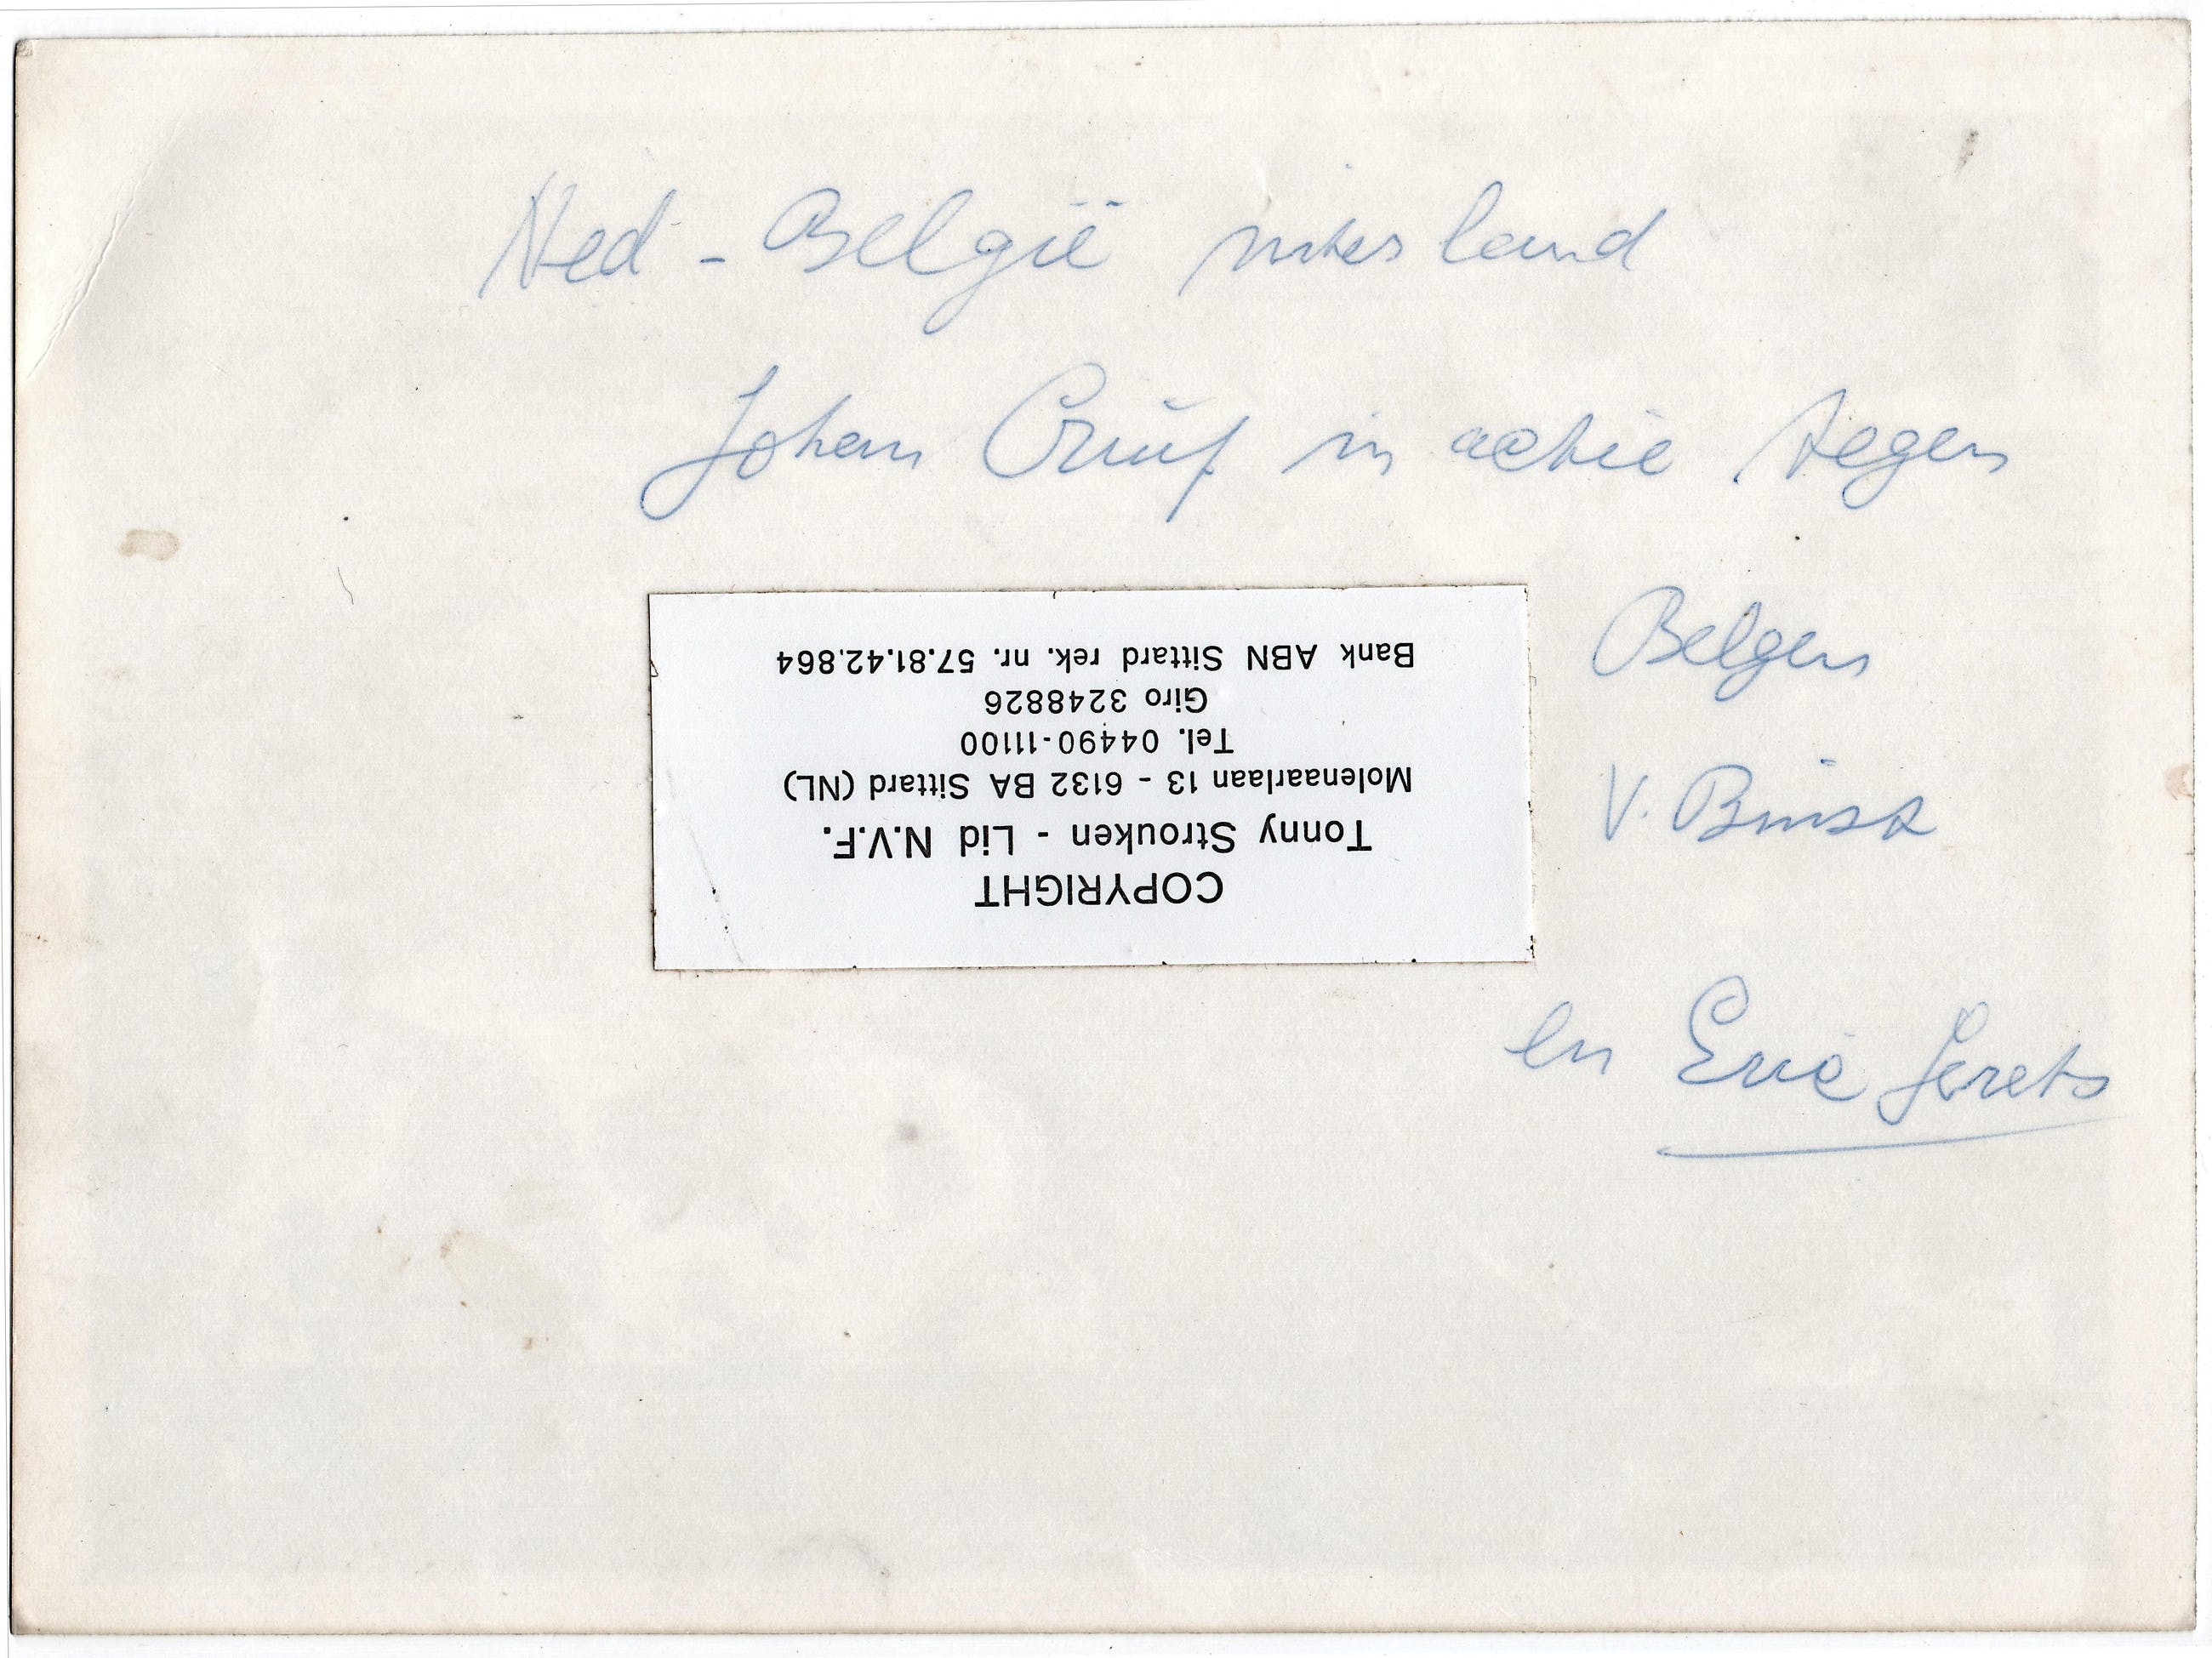 Ned - België interland
Johan Cruif in actie tegen
Belgen
V. Binst
en Eric Gerets
COPYRIGHT
Tonny Strouken - Lid N.V.F.
Molenaarlaan 13 - 6132 BA Sittard (NL)
Tel. 04490-11100
Giro 3248826
Bank ABN Sittard rek. nr. 57.81.42.864